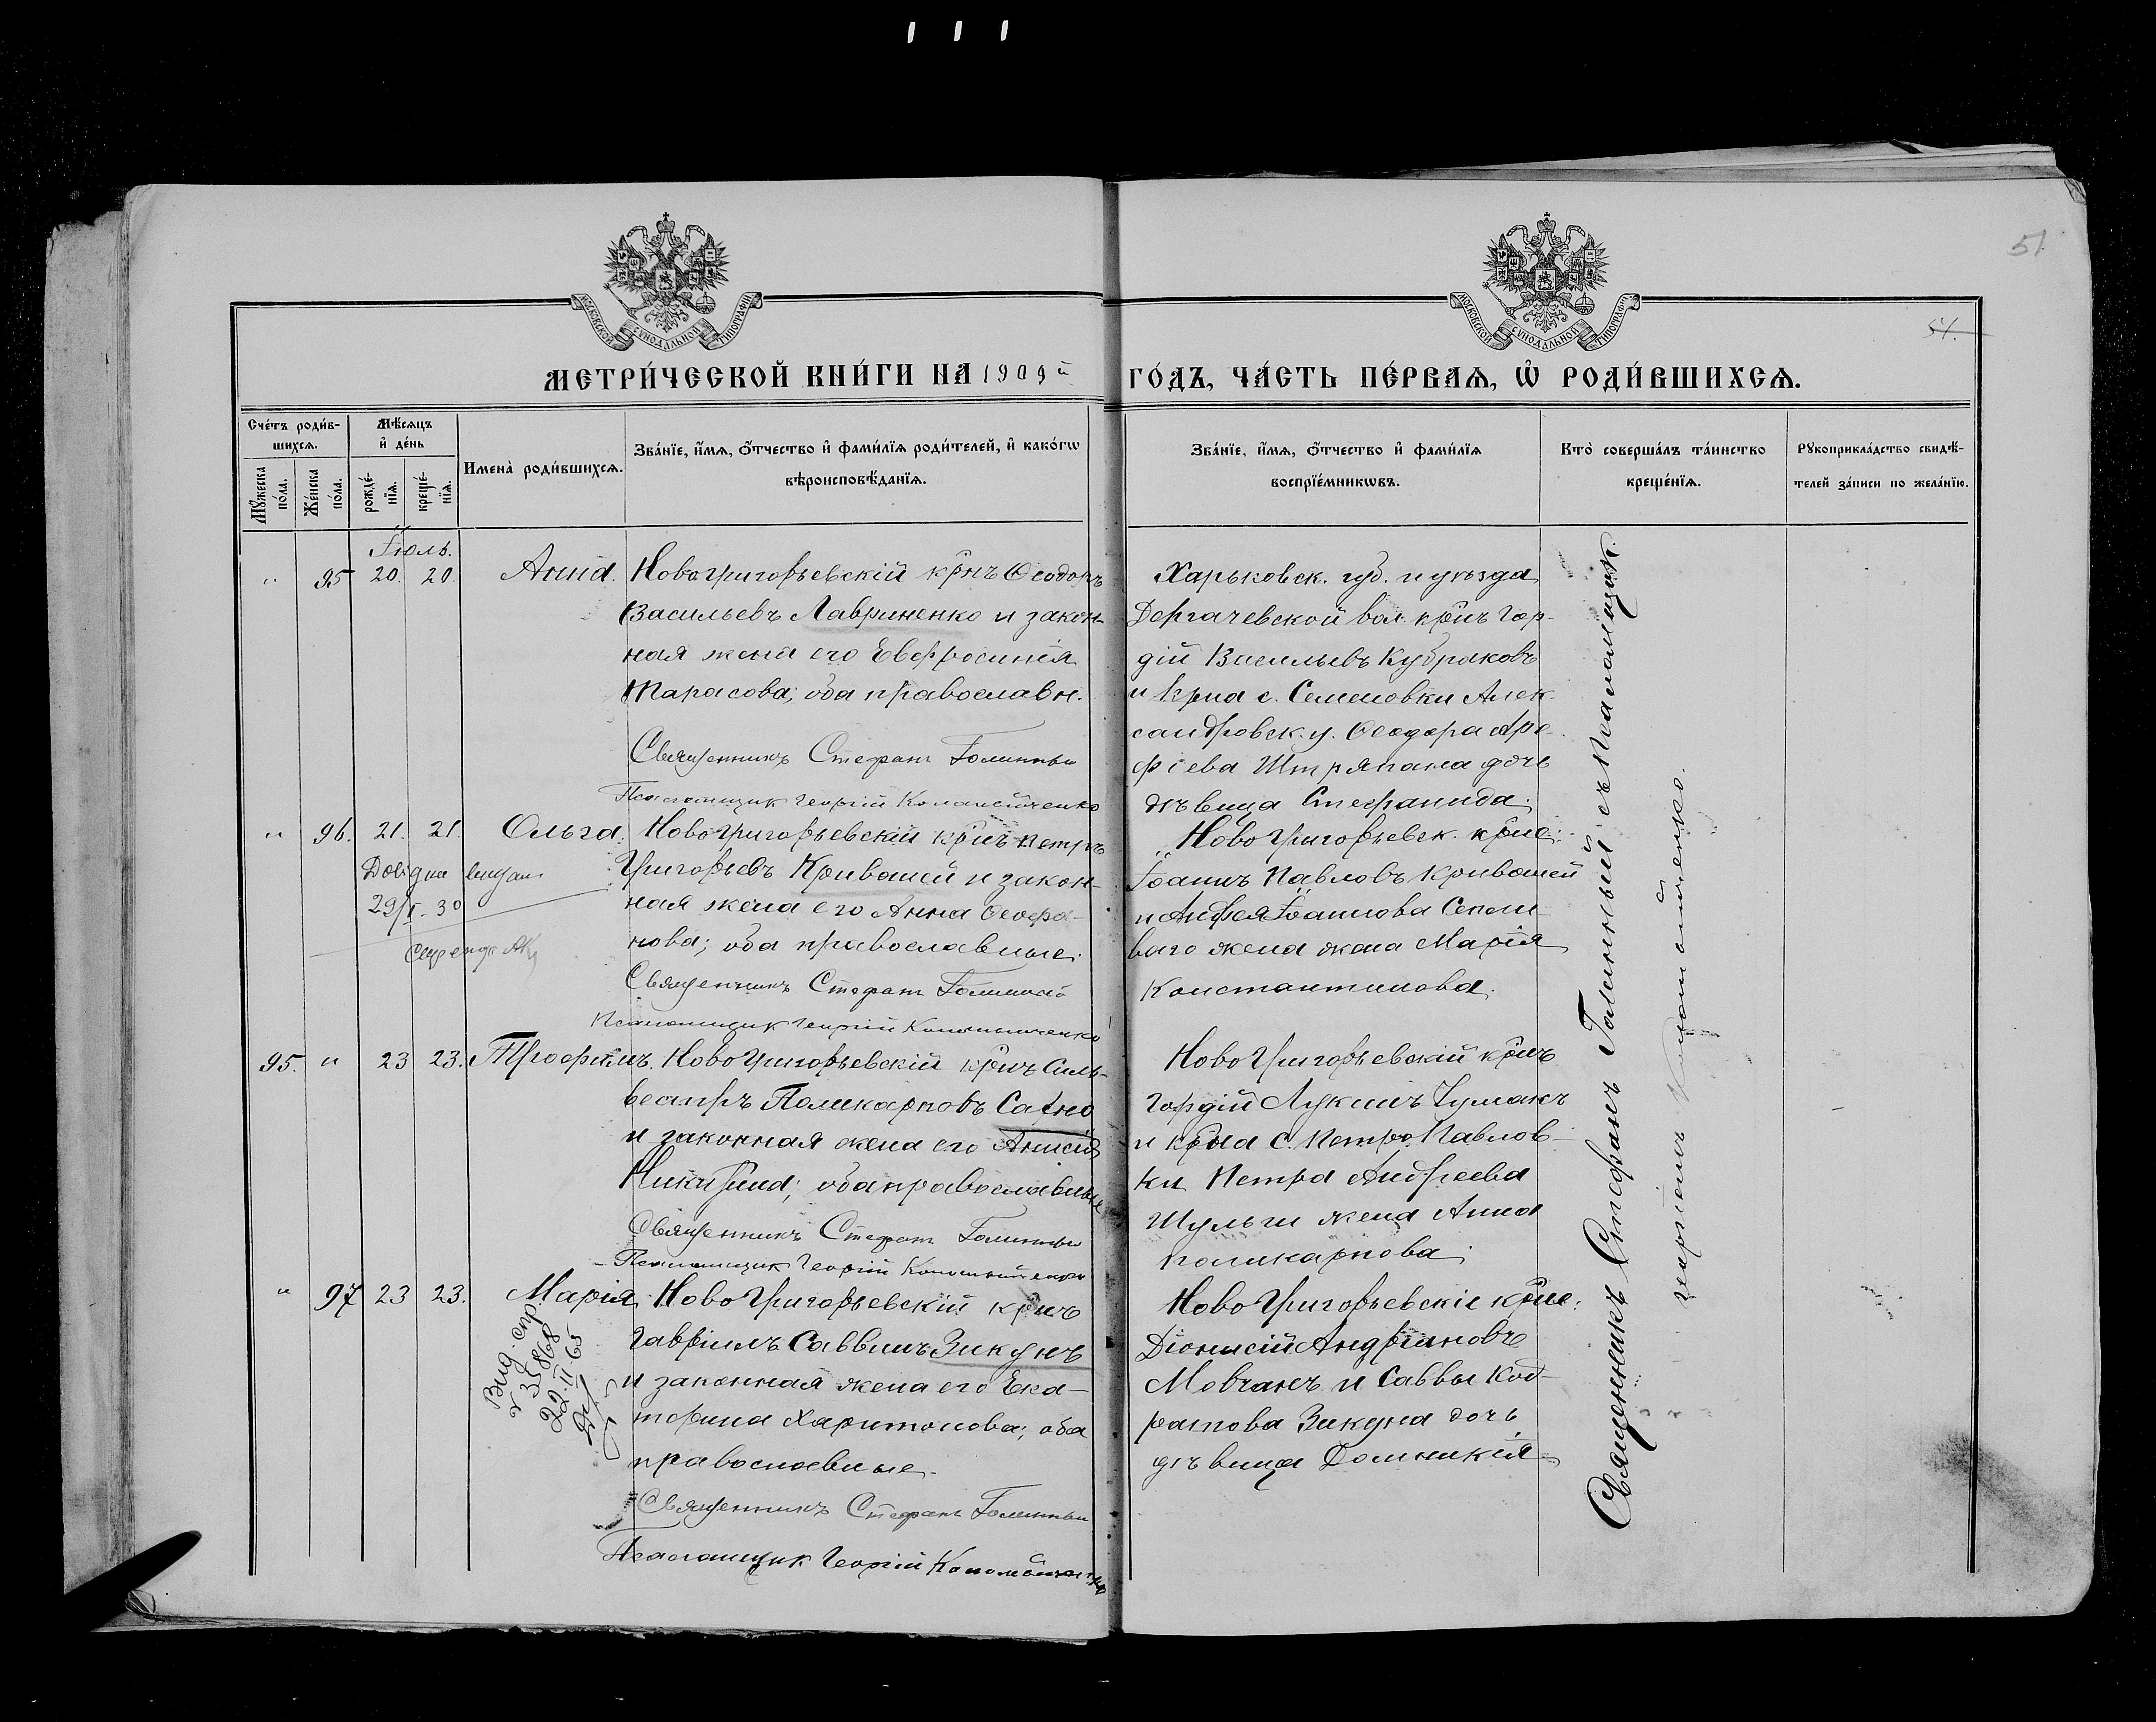 51.
54.
МОСКОВСКОЙ СѴНОДАЛЬНОЙ ТИПОГРАФІИ
МОСКОВСКОЙ СѴНОДАЛЬНОЙ ТИПОГРАФІИ
МЕТРИ́ЧЕСКОЙ КНИ́ГИ НА 1909й ГО́ДЪ, ЧА́СТЬ ПЕ́РВАѦ, Ѡ҆ РОДИ́ВШИХСѦ.
Сче́тъ роди́в-
шихсѧ.
Мꙋ́жеска
по́ла.
Же́нска
по́ла.
Мѣ́сѧцъ
и҆ де́нь
рожде́-
нїѧ.
креще́-
нїѧ.
Имена̀ роди́вшихсѧ.
Зва́нїе, и҆́мѧ, ѻ҆́тчество и҆ фами́лїѧ роди́телей, и҆ како́гѡ
вѣроисповѣ́данїѧ.
Зва́нїе, и҆́мѧ, ѻ҆́тчество и҆ фами́лїѧ
воспрїе́мникѡвъ.
Кто̀ соверша́лъ та́инство
креще́нїѧ.
Рꙋкоприкла́дство свидѣ́-
телей за́писи по жела́нїю.
Іюль.
" 95 20. 20. Анна.
Новогригорьевскій крнъ Ѳеодоръ
Васильевъ Лавриненко и закон-
ная жена его Евфросинія
Тарасова; оба православн.
Священникъ Стефанъ Голинный
Псаломщик Георгій Коломійченко
Харьковск. губ. и уѣзда
Дергачевской вол. крнъ Гор-
дій Васильевъ Кубраковъ
и крна с. Семеновки Алек-
сандровск. у. Ѳеодора Аре-
фіева Штряпана дочь
дѣвица Стефанида.
" 96. 21. 21. Ольга.
Новогригорьевскій крнъ Петръ
Григорьевъ Кривошей и закон-
ная жена его Анна Ѳеофа-
нова; оба православные.
Священникъ Стефанъ Голинный
Псаломщик Георгій Коломійченко
29/I. 30
Новогригорьевск. крне:
Іоаннъ Павловъ Кривошей
и Андрея Іоаннова Сепли-
ваго жена жена Марія
Константинова.
95. " 23 23. Трофимъ.
Новогригорьевскій крнъ Силь-
вестръ Поликарповъ Сахно
и законная жена его Анисія
Никитина; оба православные
Священникъ Стефанъ Голинный
Псаломщик Георгій Коломійченко
Новогригорьевскій крнъ
Гордій Лукинъ Чумакъ
и крна с. Петро-Павлов-
ки Петра Андреева
Шульги жена Анна
Поликарпова.
" 97 23 23. Марія
Новогригорьевскій крнъ
Гавріилъ Саввинъ Зикунъ
и законная жена его Ека-
терина Харитонова; оба
православные.
Священникъ Стефанъ Голинный
Псаломщик Георгій Коломійченко
Вид. спр.
35868
22.II.65
Новогригорьевскіе крне:
Діонисій Андріановъ
Мовчанъ и Саввы Код-
ратова Зикуна дочь
дѣвица Домникія.
Священникъ Стефанъ Голинный съ псаломщик.
Георгіемъ Коломійченко.